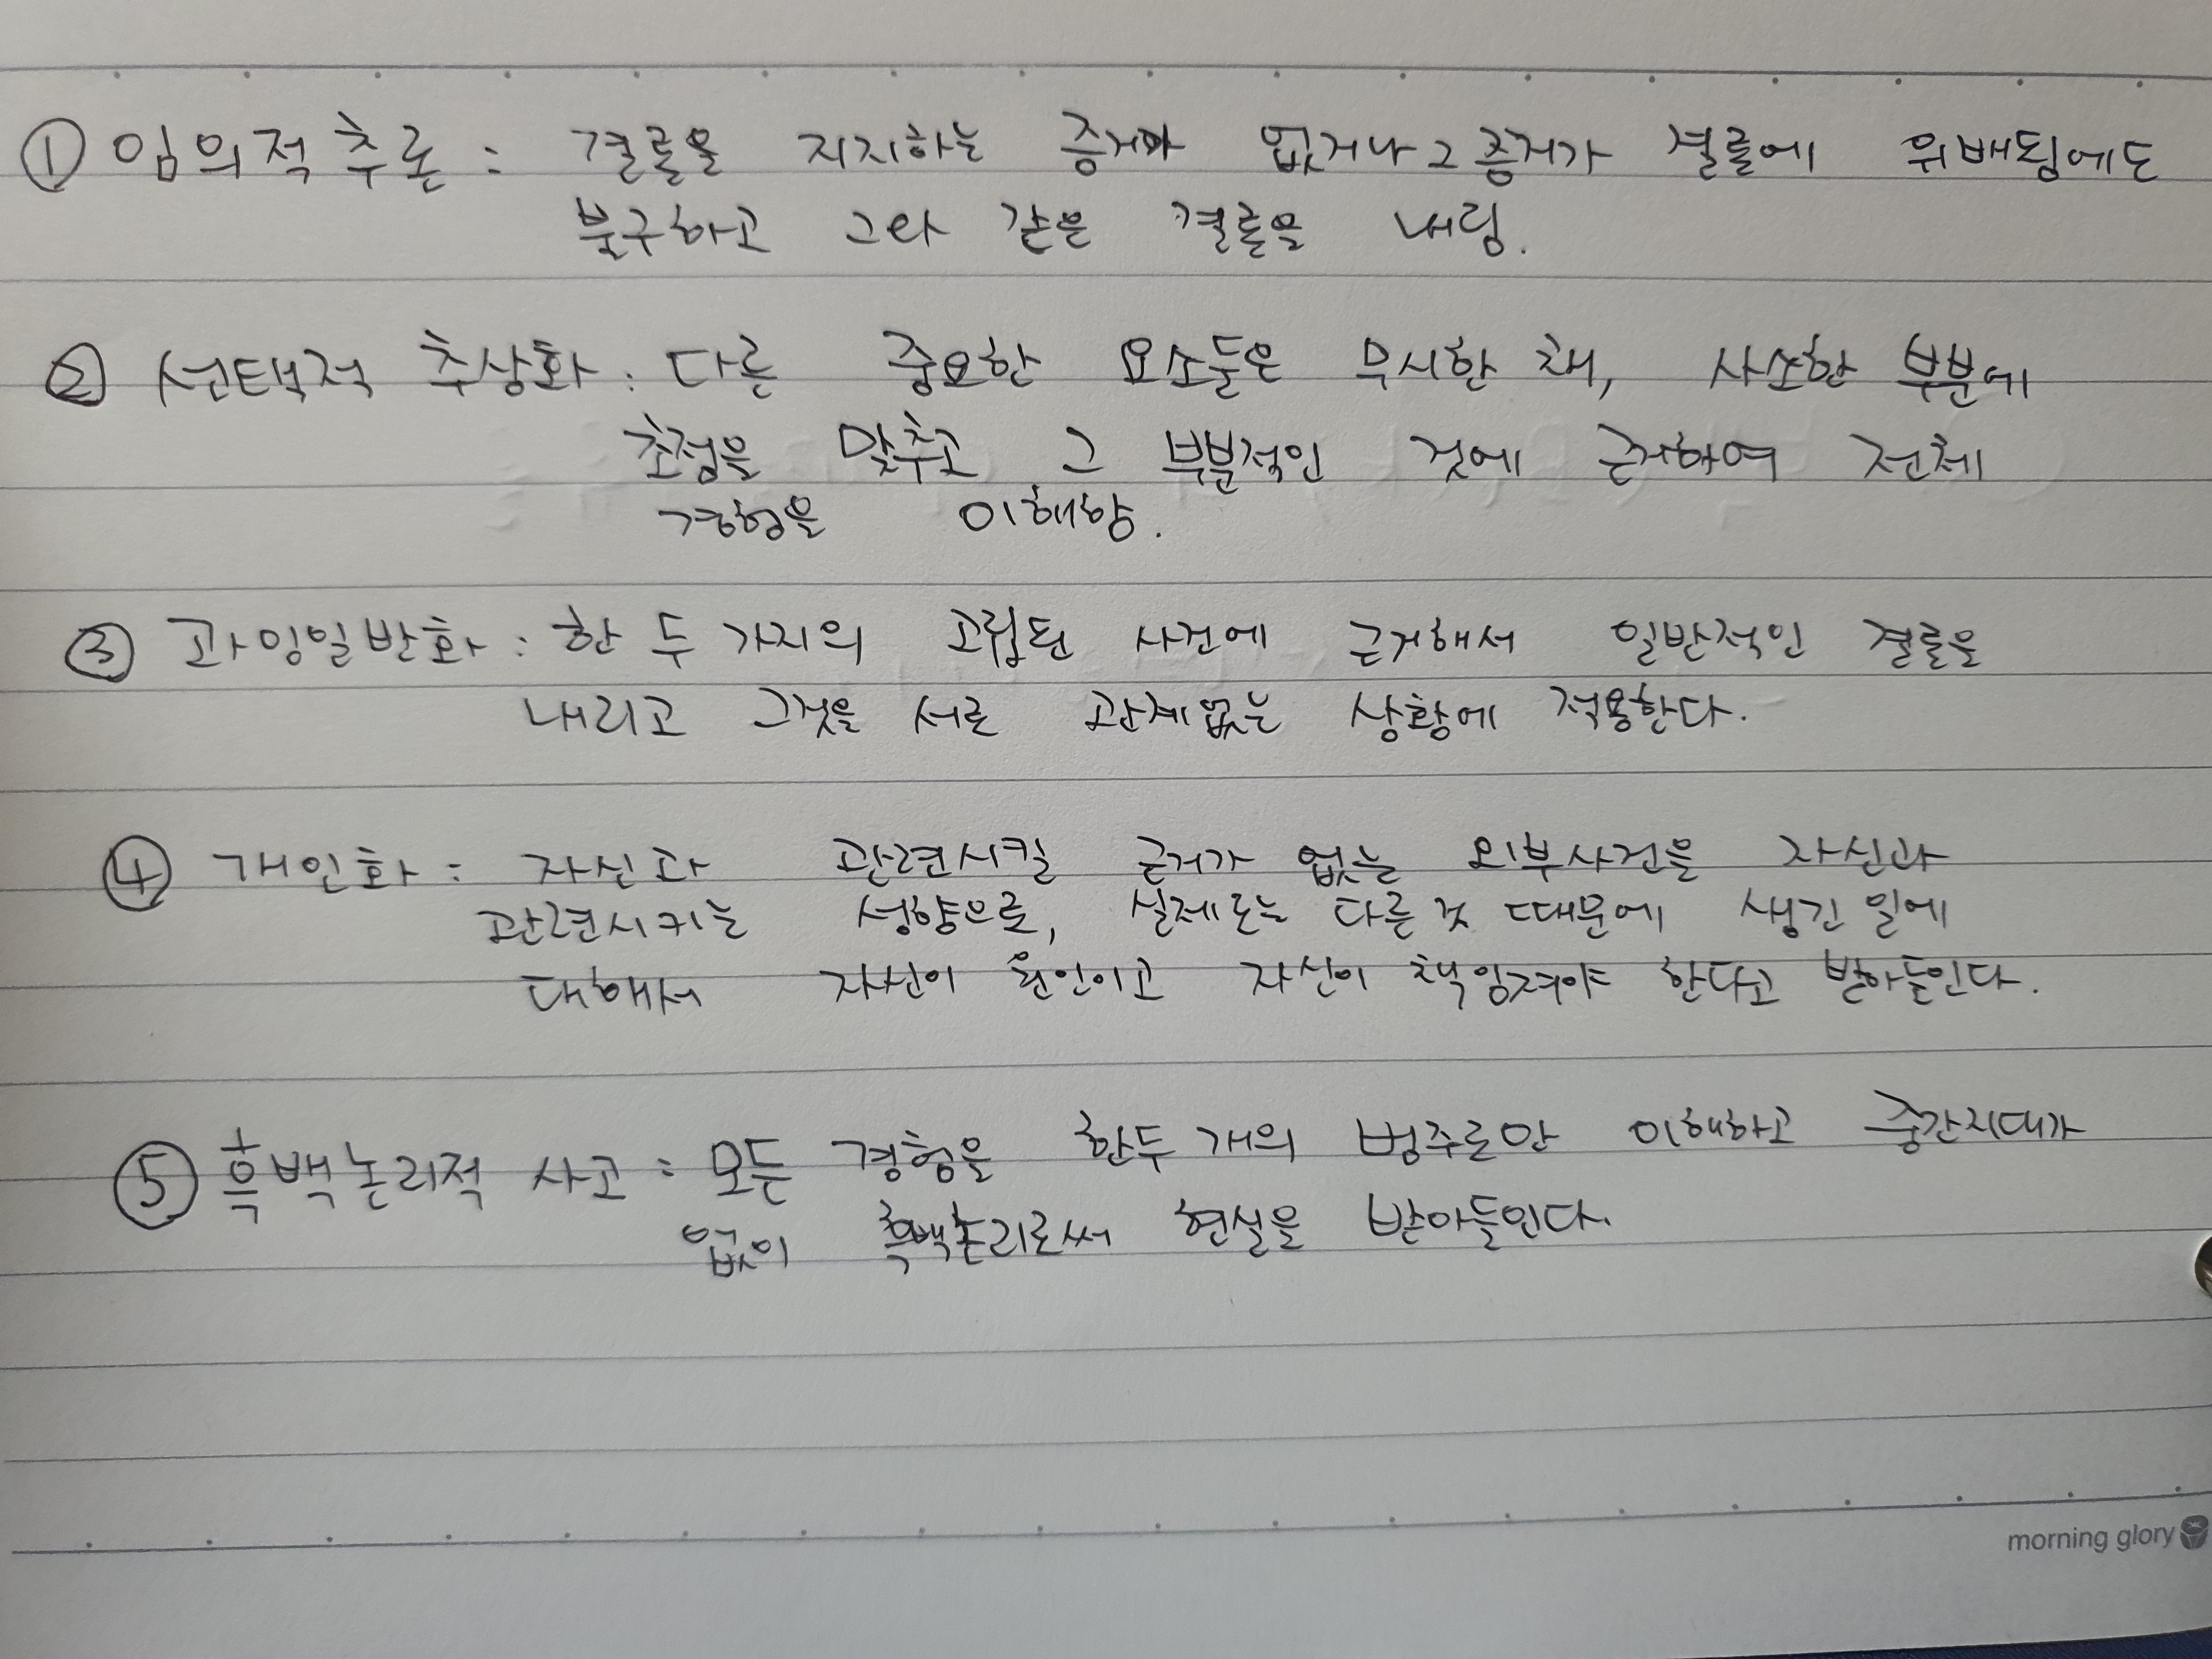 ① 임의적 추론 : 결론을 지지하는 증거가 없거나 그 증거가 결론에 위배됨에도
불구하고 그와 같은 결론을 내림.
② 선택적 추상화 : 다른 중요한 요소들은 무시한 채, 사소한 부분에
초점을 맞추고 그 부분적인 것에 근거하여 전체
경험을 이해함.
③ 과잉일반화 : 한 두 가지의 고립된 사건에 근거해서 일반적인 결론을
내리고 그것을 서로 관계없는 상황에 적용한다.
④ 개인화 : 자신과 관련시킬 근거가 없는 외부사건을 자신과
관련시키는 성향으로, 실제로는 다른 것 때문에 생긴 일에
대해서 자신이 원인이고 자신이 책임져야 한다고 받아들인다.
⑤ 흑백논리적 사고 : 모든 경험을 한두 개의 범주로만 이해하고 중간지대가
없이 흑백논리로써 현실을 받아들인다.
morning glory